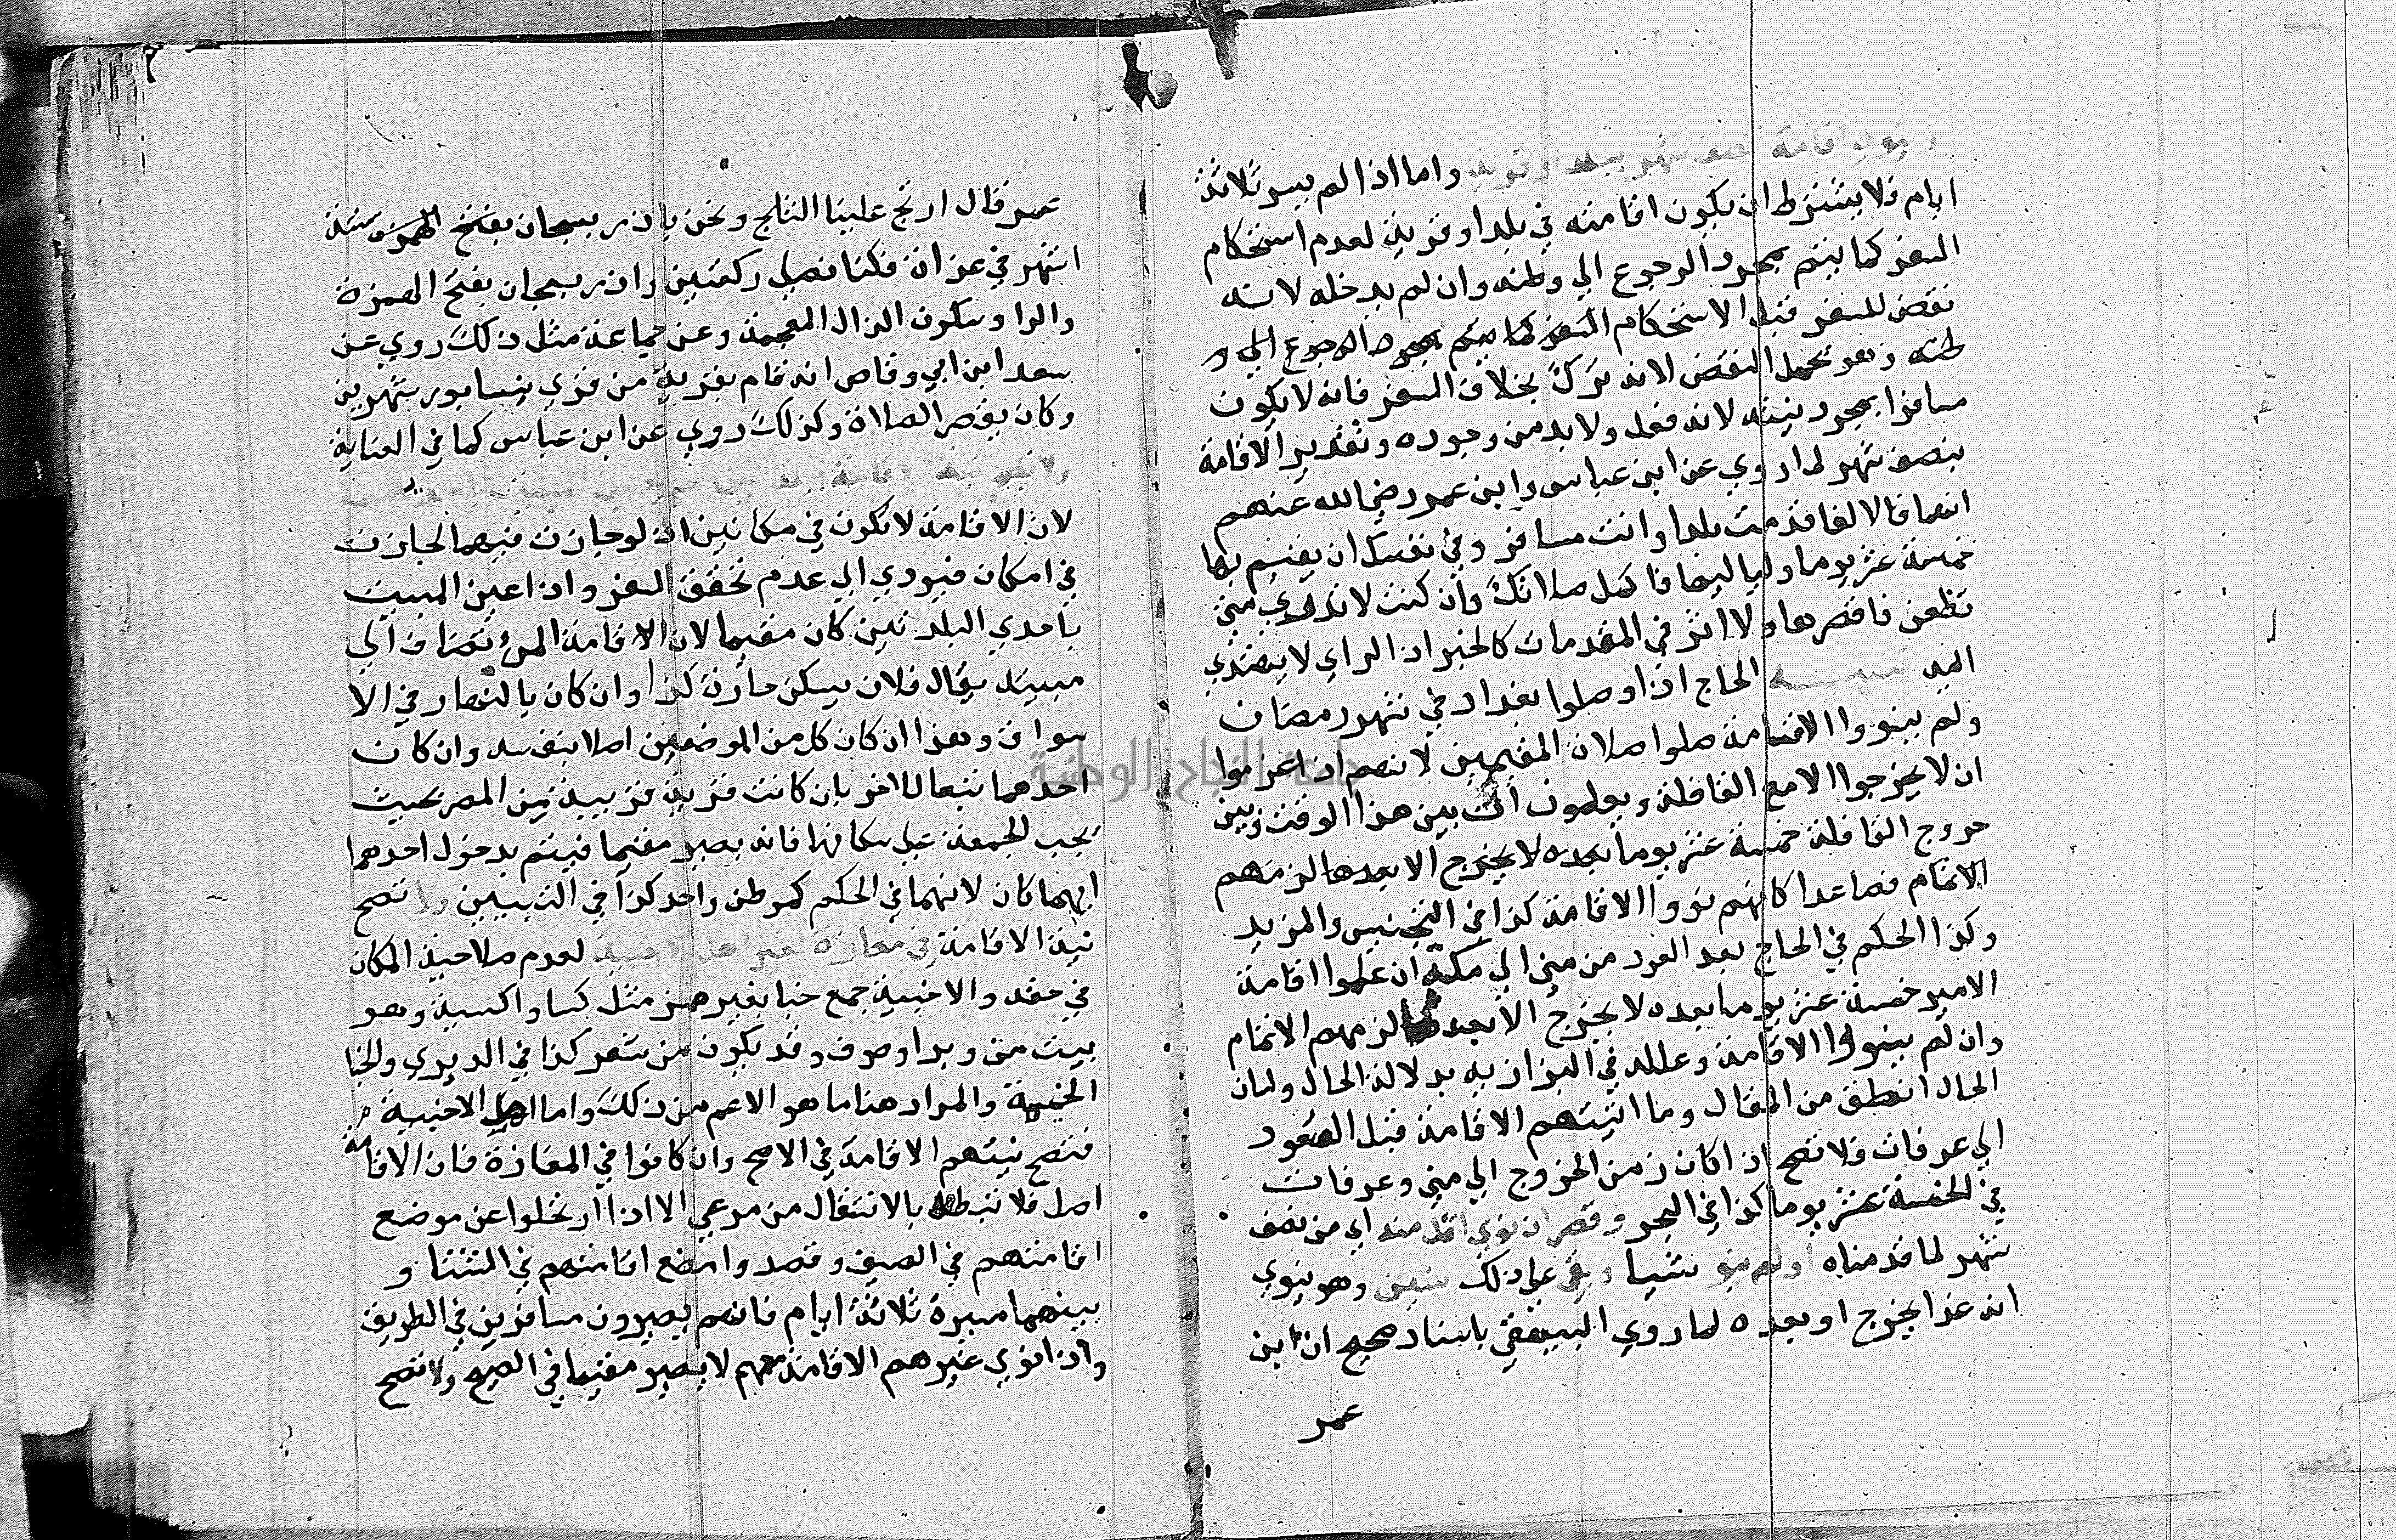 او ينوي اقامة نصف شهر ببلد او قرية واما اذا لم يسر ثلاثة
ايام فلا يشترط ان يكون اقامته في بلد او قرية لعدم استحكام
السفر كما يتم بمجرد الرجوع الي وطنه وان لم يدخله لانه
نقض للسفر قبل الاستحكام السفر كما يتم بمجرد الرجوع الي و
طنه وهو يحمل النقض لانه ترك بخلاف السفر فانه لا يكون
مسافرا بمجرد نيته لانه فعل ولا بد من وجوده وتقدير الاقامة
بنصف شهر لما روي عن ابن عباس وابن عمر رضي الله عنهم
انهما قالا لغا قدمت بلدا وانت مسافر وفي نفسك ان يقيم بها
خمسة عشر يوما ولياليها فاكمل صلاتك وان كنت لا تدري متى
تظعن فاقصرها ولا اثر في المقدمات كالخبر اذ الراي لا يهتدي
اليه تنبيه الحاج اذا وصلوا بغداد في شهر رمضان
ولم ينووا الاقامة صلوا صلاة المقيمين لانهم اذ اعزموا
ان لا يخرجوا الا مع القافلة ويعلمون ان بين هذا الوقت وبين
خروج القافلة خمسة عشر يوما بعده لا يخرج الا بعدها لزمهم
الاتمام فصاعدا كانهم نووا الاقامة كذا في التجنيس والمزيد
وكذا الحكم في الحاج بعد العود من منى الي مكة ان علموا اقامة
الامير خمسة عشر يوما بعده لا يخرج الا بعدها لزمهم الاتمام
وان لم ينووا الاقامة وعلله في البزازيه بدلالة الحال ولسان
الحال انطق من المقال وما انيتهم الاقامة قبل الصعود
الي عرفات فلا تصح اذا كان زمن الخروج الي منى وعرفات
في الخمسة عشر يوما كذا في البحر وقصر ان نوي اقل منه اي من نصف
شهر لما قدمناه او لم ينو شيا وبقي علي ذلك سنين وهو ينوي
انه غدا يخرج او بعده لما روي البيهقي باسناد صحيح ان ابن
عمر
عمر قال ارتج علينا الثلج ونحن باذربيجان بفتح الهمزة ستة
اشهر في غزاة فكنا نصلي ركعتين واذربيجان بفتح الهمزة
والرا وسكون الذال المعجمة وعن جماعة مثل ذلك روي عن
سعد ابن ابي وقاص انه قام بقرية من قري نيسابور شهرين
وكان يقصر الصلاة وكذلك روي عن ابن عباس كما في العناية
ولا تصح نية الاقامة
لان الاقامة لا تكون في مكانين اذ لو جازت فيهما لجازت
في امكان فيودي الي عدم تحقق السفر واذا عين المبيت
باحدي البلدتين كان مقيما لان الاقامة المرء تضاف الي
مبيته يقال فلان يسكن حارة كذا وان كان بالنهار في الا
سواق وهذا ان كان كل من الموضعين اصلا بنفسه وان كان
احدهما تبعا للاخر بان كانت قرية قريبة من المصر بحيث
تجب الجمعة علي سكانها فانه يصير مقيما فيتم بدخول احدهما
ايهما كان لانهما في الحكم كموطن واحد كذا في التبيين ولا تصح
نية الاقامة في مفازة لغير اهل الاخبية لعدم صلاحية المكان
في حقه والاخبية جمع خبا بغير همز مثل كسا واكسية وهو
بيت من وبر او صوف وقد يكون من شعر كذا في الديري والخبا
الخيمة والمراد هنا ما هو الاعم من ذلك واما اهل الاخبية
فتصح نيتهم الاقامة في الاصح وان كانوا في المفازة فان الاقامة
اصل فلا تبطل بالانتقال من مرعي الا اذا ارتحلوا عن موضع
اقامتهم في الصيف وقصدوا موضع اقامتهم في الشتا و
بينهما مسيرة ثلاثة ايام فانهم يصيرون مسافرين في الطريق
واذا نوي غيرهم الاقامة معهم لا يصير مقيما في الصحيح ولا تصح
جامعة النجاح الوطنية